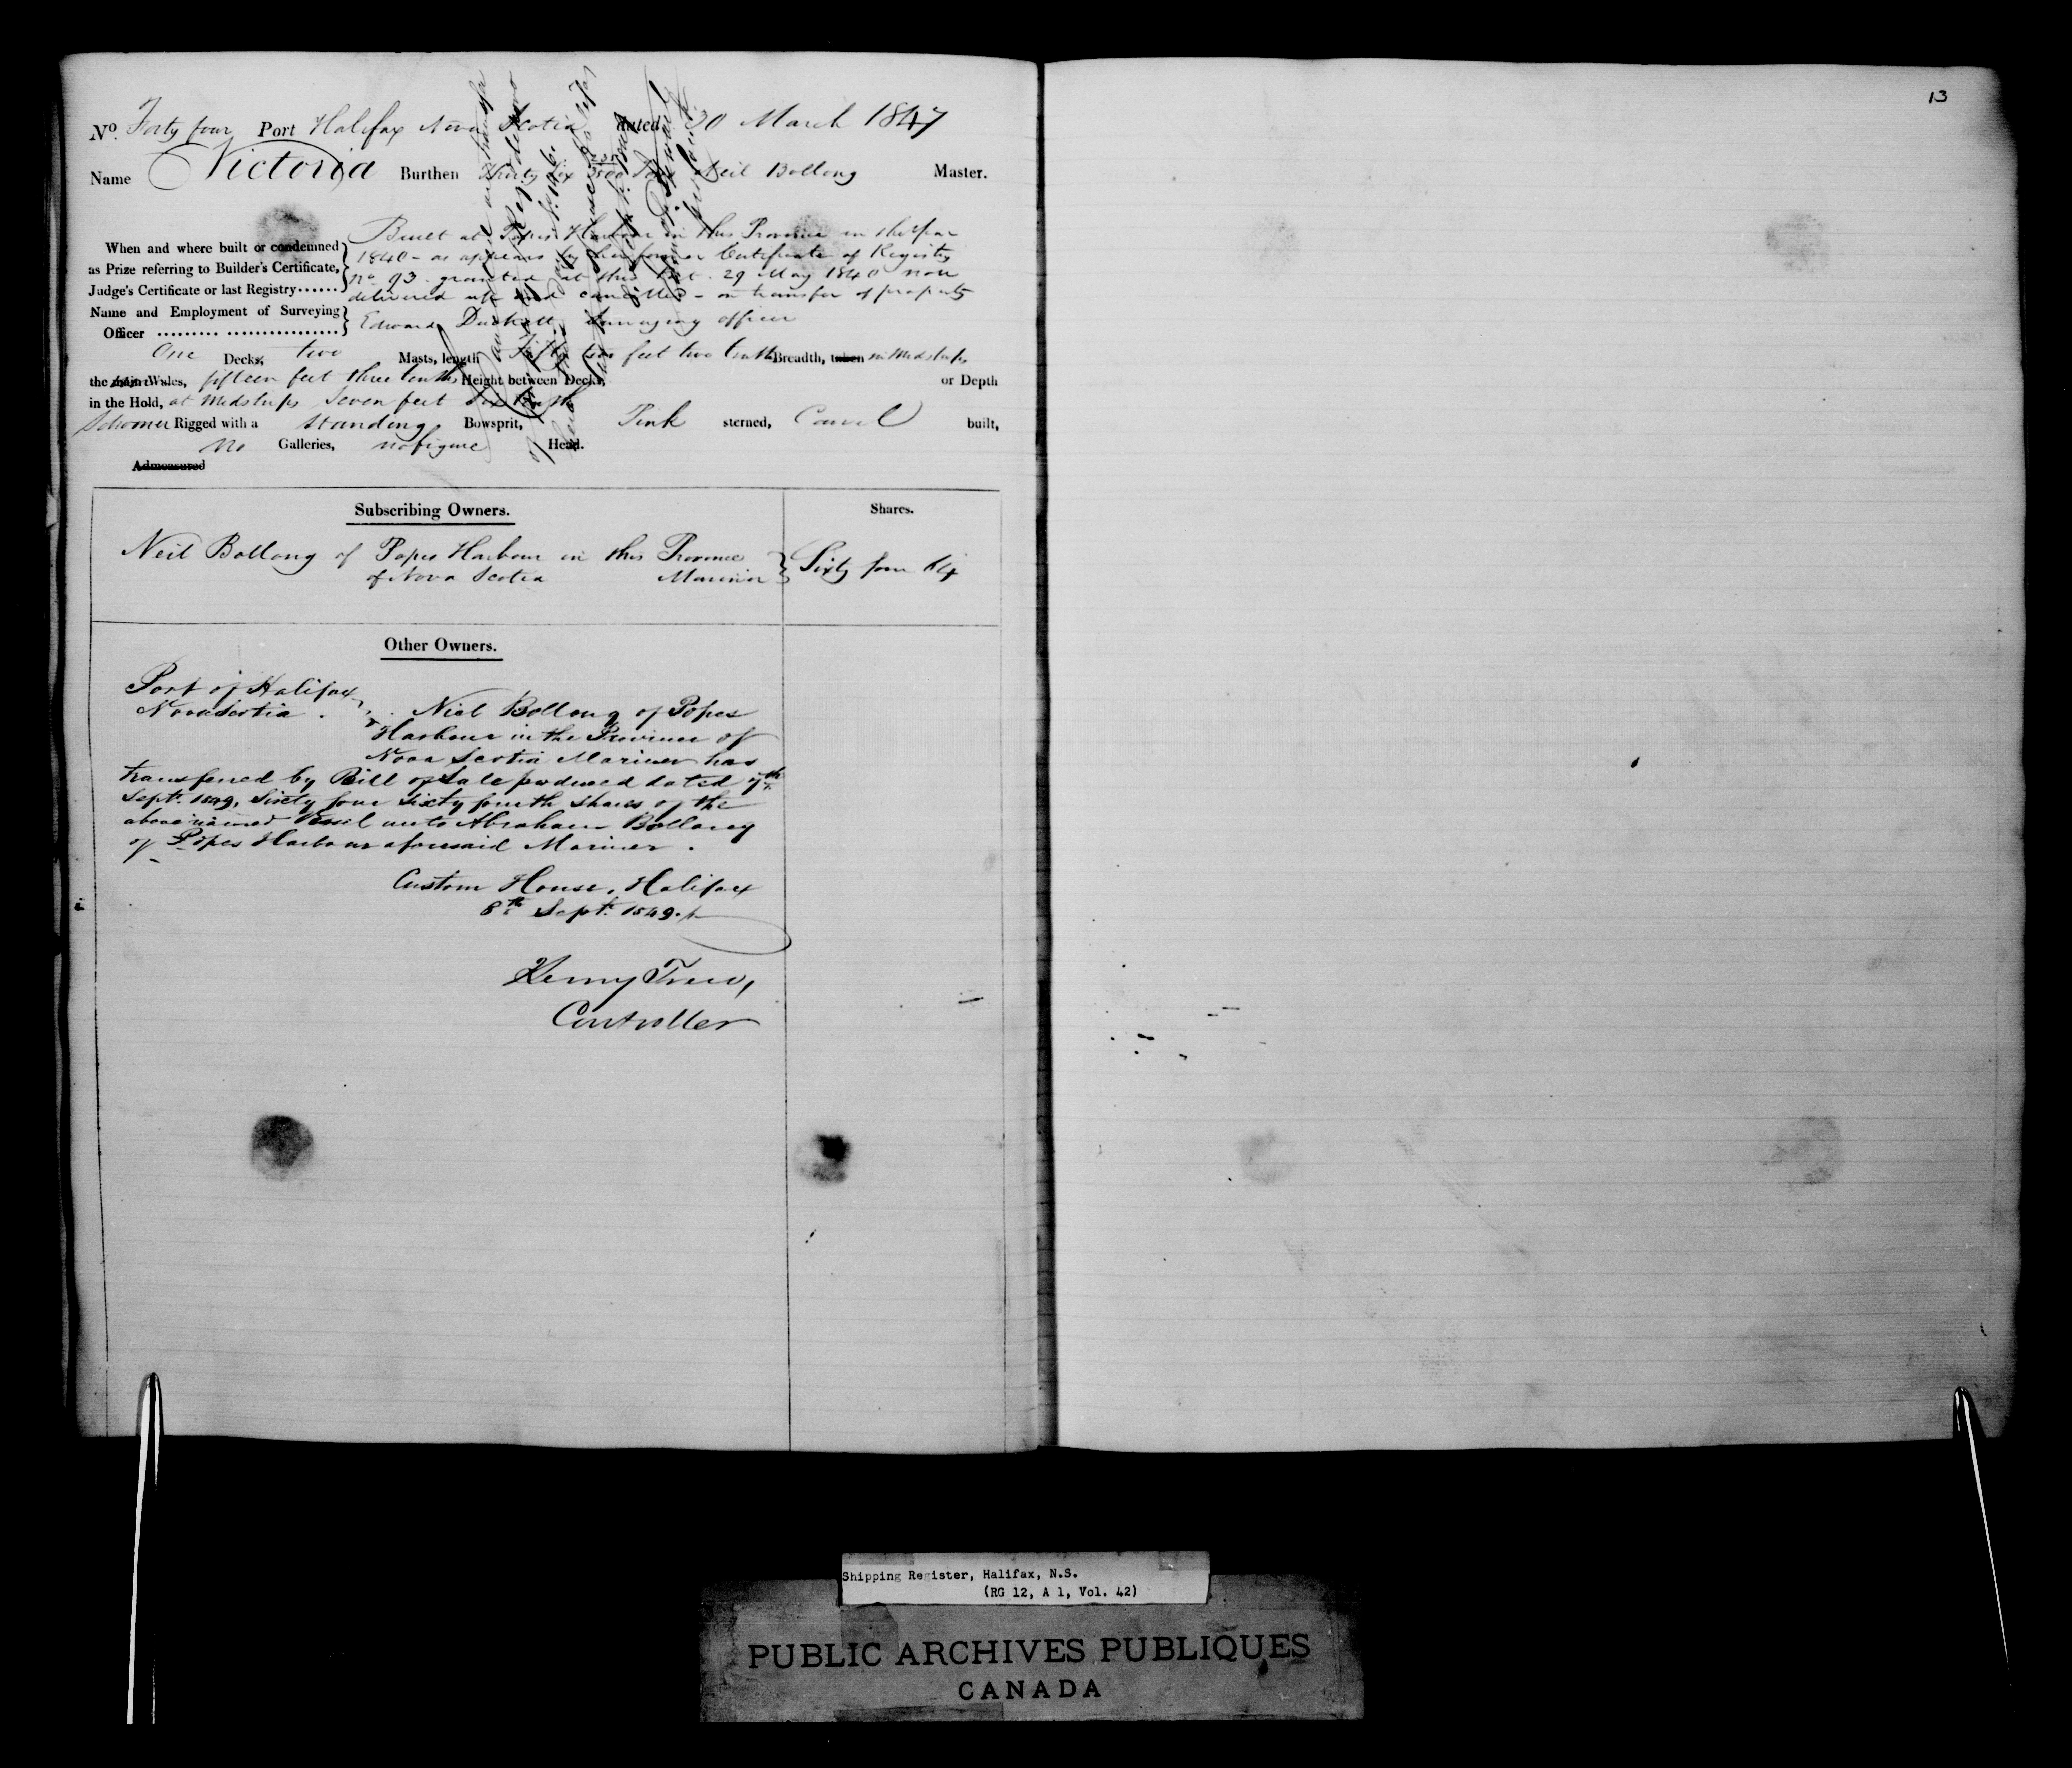 13
No. Forty four Port Halifax Nova Scotia dated 30 March 1847
Name Victoria Burthen Thirty six Tons Neil Bollong Master.
When and where built or condemned as Prize referring to Builder's Certificate, Judge's Certificate or last Registry......
Built at Popes Harbour in this Province in the year
1840 - as appears by her former Certificate of Registry
No. 93 granted at this Port 29 May 1840 now
delivered up and cancelled - on transfer of property
Name and Employment of Surveying Officer ......... ................. Edward Duckett Surveying officer
One Decks, two Masts, length Fifty two feet two tenths Breadth, taken in Midships
the main Wales, fifteen feet three tenths Height between Decks, or Depth
in the Hold, at Midships Seven feet six tenths
Schooner Rigged with a Standing Bowsprit, Pink sterned, Carvel built,
no Galleries, no figure Head.
Admeasured
Subscribing Owners. Shares.
Neil Bollong of Popes Harbour in this Province
of Nova Scotia Mariner Sixty four 64
Other Owners.
Port of Halifax
Nova Scotia. Niel Bollong of Popes
Harbour in the Province of
Nova Scotia Mariner has
transferred by Bill of Sale produced dated 7th
Septr. 1849, Sixty four Sixty fourth shares of the
above named Vessel unto Abraham Bollong
of Popes Harbour aforesaid Mariner.
Custom House, Halifax
8th Septr. 1849.
Henry Trew,
Controller
Shipping Register, Halifax, N.S.
(RG 12, A 1, Vol. 42)
PUBLIC ARCHIVES PUBLIQUES
CANADA